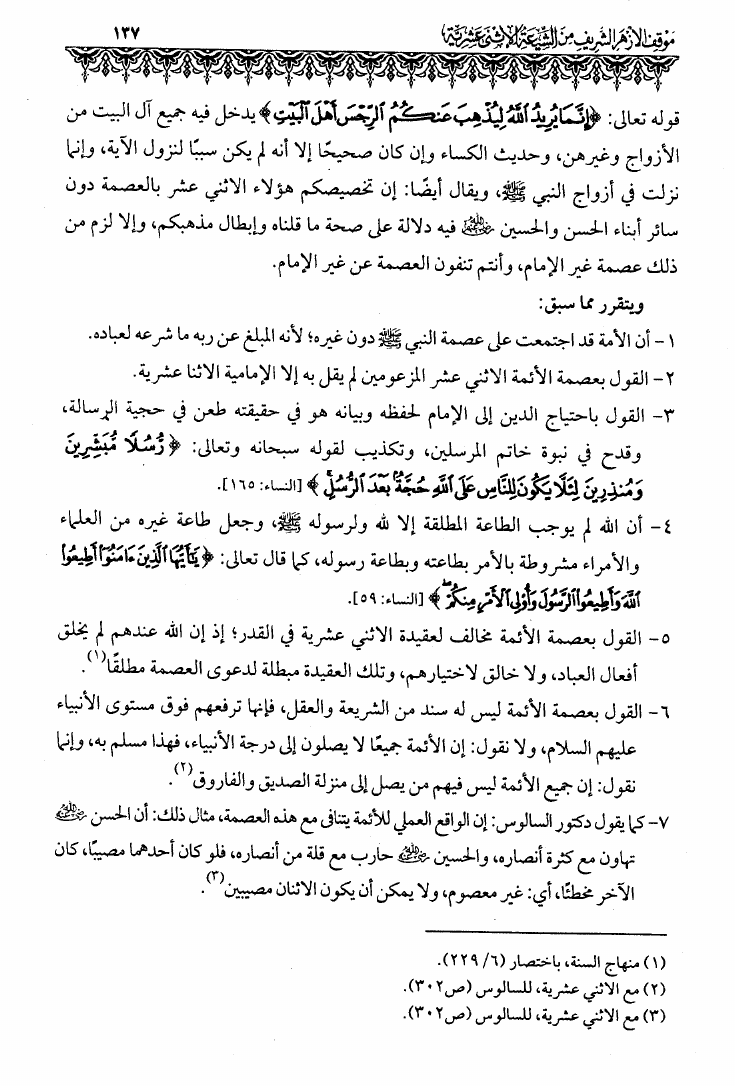 موقف الأزهر الشريف من الشيعة الاثنى عشرية
١٣٧
قوله تعالى: ﴿إِنَّمَا يُرِيدُ ٱللَّهُ لِيُذۡهِبَ عَنكُمُ ٱلرِّجۡسَ أَهۡلَ ٱلۡبَيۡتِ﴾ يدخل فيه جميع آل البيت من
الأزواج وغيرهن، وحديث الكساء وإن كان صحيحًا إلا أنه لم يكن سببًا لنزول الآية، وإنما
نزلت في أزواج النبي ﷺ، ويقال أيضًا: إن تخصيصكم هؤلاء الاثني عشر بالعصمة دون
سائر أبناء الحسن والحسين رضي الله عنهما فيه دلالة على صحة ما قلناه وإبطال مذهبكم، وإلا لزم من
ذلك عصمة غير الإمام، وأنتم تنفون العصمة عن غير الإمام.
ويتقرر مما سبق:
١- أن الأمة قد اجتمعت على عصمة النبي ﷺ دون غيره؛ لأنه المبلغ عن ربه ما شرعه لعباده.
٢- القول بعصمة الأئمة الاثني عشر المزعومين لم يقل به إلا الإمامية الاثنا عشرية.
٣- القول باحتياج الدين إلى الإمام لحفظه وبيانه هو في حقيقته طعن في حجية الرسالة،
وقدح في نبوة خاتم المرسلين، وتكذيب لقوله سبحانه وتعالى: ﴿رُّسُلٗا مُّبَشِّرِينَ
وَمُنذِرِينَ لِئَلَّا يَكُونَ لِلنَّاسِ عَلَى ٱللَّهِ حُجَّةُۢ بَعۡدَ ٱلرُّسُلِۚ﴾ [النساء: ١٦٥].
٤- أن الله لم يوجب الطاعة المطلقة إلا لله ولرسوله ﷺ، وجعل طاعة غيره من العلماء
والأمراء مشروطة بالأمر بطاعته وبطاعة رسوله، كما قال تعالى: ﴿يَٰٓأَيُّهَا ٱلَّذِينَ ءَامَنُوٓاْ أَطِيعُواْ
ٱللَّهَ وَأَطِيعُواْ ٱلرَّسُولَ وَأُوْلِي ٱلۡأَمۡرِ مِنكُمۡۖ﴾ [النساء: ٥٩].
٥- القول بعصمة الأئمة مخالف لعقيدة الاثني عشرية في القدر؛ إذ إن الله عندهم لم يخلق
أفعال العباد، ولا خالق لاختيارهم، وتلك العقيدة مبطلة لدعوى العصمة مطلقًا(١).
٦- القول بعصمة الأئمة ليس له سند من الشريعة والعقل، فإنها ترفعهم فوق مستوى الأنبياء
عليهم السلام، ولا نقول: إن الأئمة جميعًا لا يصلون إلى درجة الأنبياء، فهذا مسلم به، وإنما
نقول: إن جميع الأئمة ليس فيهم من يصل إلى منزلة الصديق والفاروق(٢).
٧- كما يقول دكتور السالوس: إن الواقع العملي للأئمة يتنافى مع هذه العصمة، مثال ذلك: أن الحسن رضي الله عنه
تهاون مع كثرة أنصاره، والحسين رضي الله عنه حارب مع قلة من أنصاره، فلو كان أحدهما مصيبًا، كان
الآخر مخطئًا، أي: غير معصوم، ولا يمكن أن يكون الاثنان مصيبين(٣).
(١) منهاج السنة، باختصار (٦/ ٢٢٩).
(٢) مع الاثني عشرية، للسالوس (ص٣٠٢).
(٣) مع الاثني عشرية، للسالوس (ص٣٠٢).